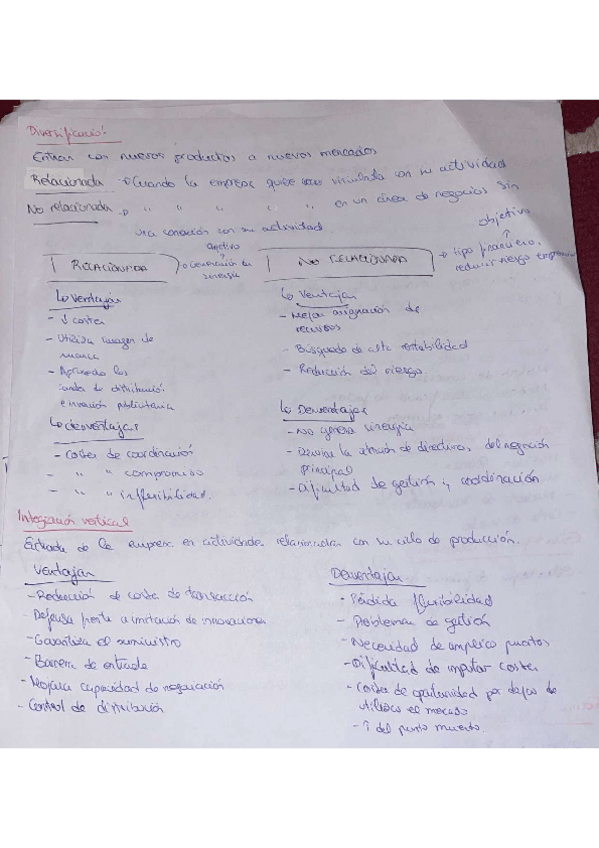 Diversificación:
Entrar con nuevos productos a nuevos mercados
Relacionada → Cuando la empresa vinculada con su actividad
No relacionada → " " " " " en un área de negocios sin
conexión con su actividad
objetivo
objetivo
RELACIONADA
→ Generación de sinergia
NO RELACIONADA
→ tipo financiero,
reducir riesgo
↳ Ventajas
- ↓ costes
- Utiliza imagen de
marca
- Aprovecha los
de distribución
publicitaria
↳ desventajas
- Costes de coordinación
- " " compromiso
- " " inflexibilidad.
↳ Ventajas
- Mejor asignación de
recursos
- Búsqueda de alta rentabilidad
- Reducción del riesgo.
↳ Desventajas
- No genera sinergia
- Desvía la atención de directivos, del negocio
principal
- Dificultad de gestión y coordinación
Integración vertical
Entrada de la empresa en actividades relacionadas con su ciclo de producción.
Ventajas
- Reducción de costes de transacción
- Defensa frente a imitación de innovaciones
- Garantiza el suministro
- Barrera de entrada
- Mejora capacidad de negociación
- Control de distribución
Desventajas
- Pérdida flexibilidad
- Problemas de gestión
- Necesidad de amplios
- Dificultad de imputar costes
- Costes de oportunidad por dejar de
utilizar el mercado
- ↑ del punto muerto.